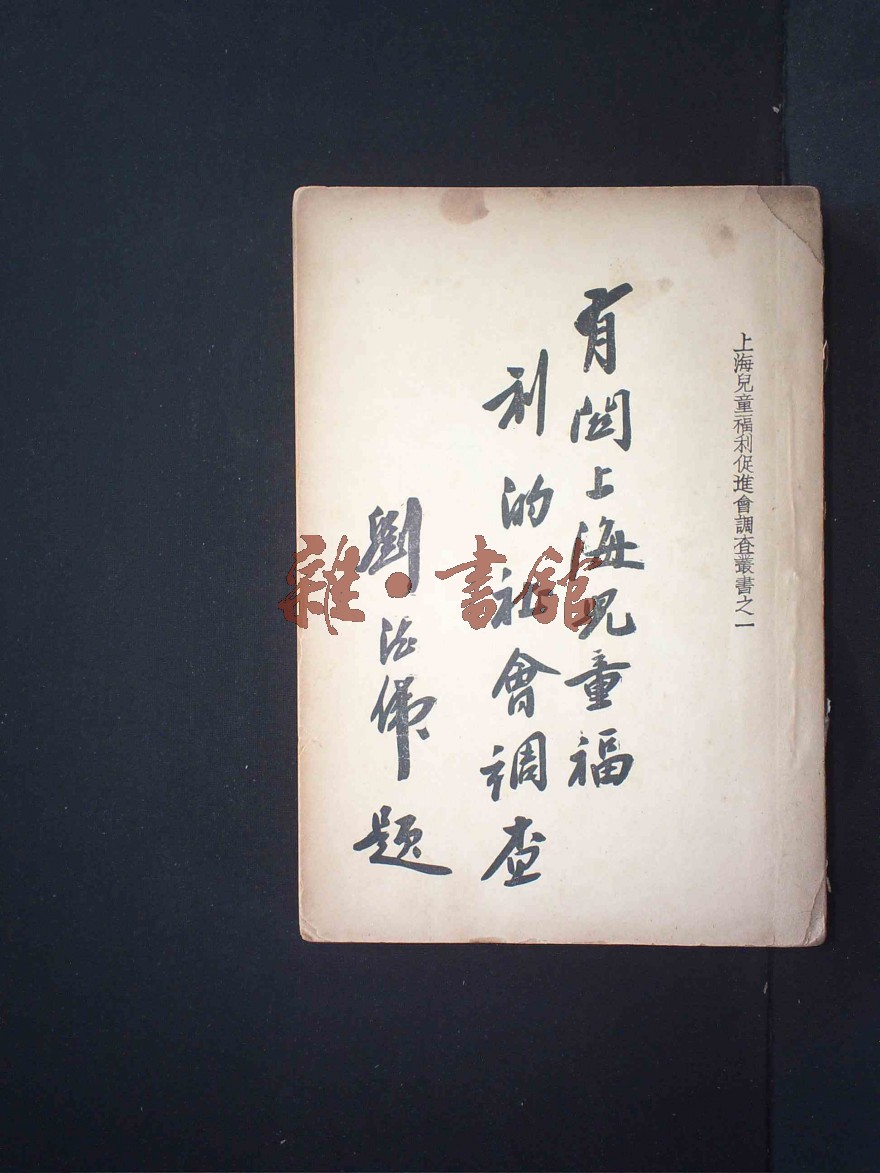 上海兒童福利促進會調査叢書之一
有関上海児童福
利的社會調査
劉德偉題
雜·書館